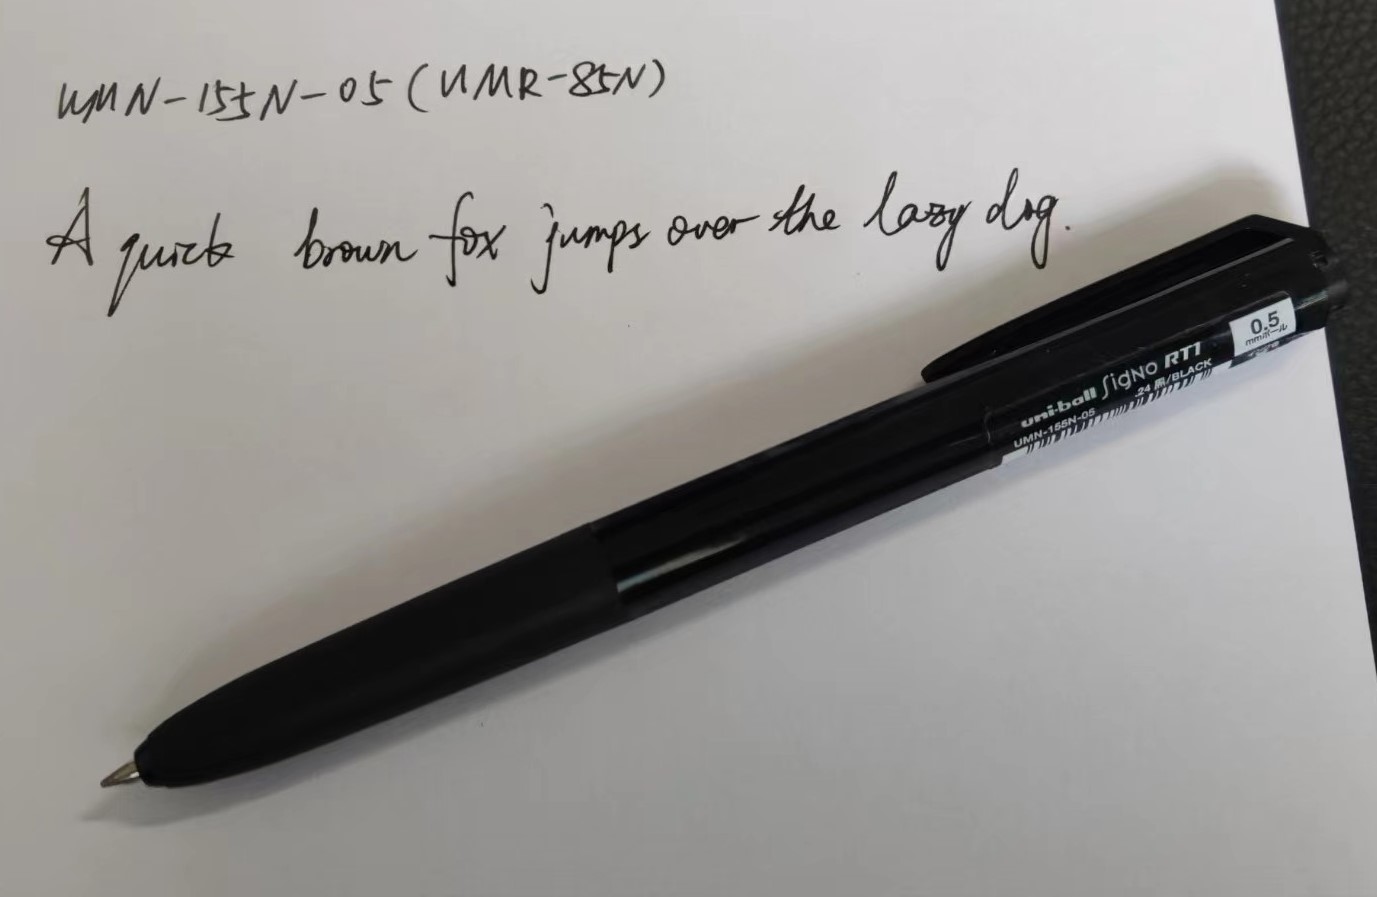 UMN-155N-05 (UMR-85N)
A quick brown fox jumps over the lazy dog.
0.5
mmボール
uni-ball SigNo RT1
UMN-155N-05 .24 黒/BLACK